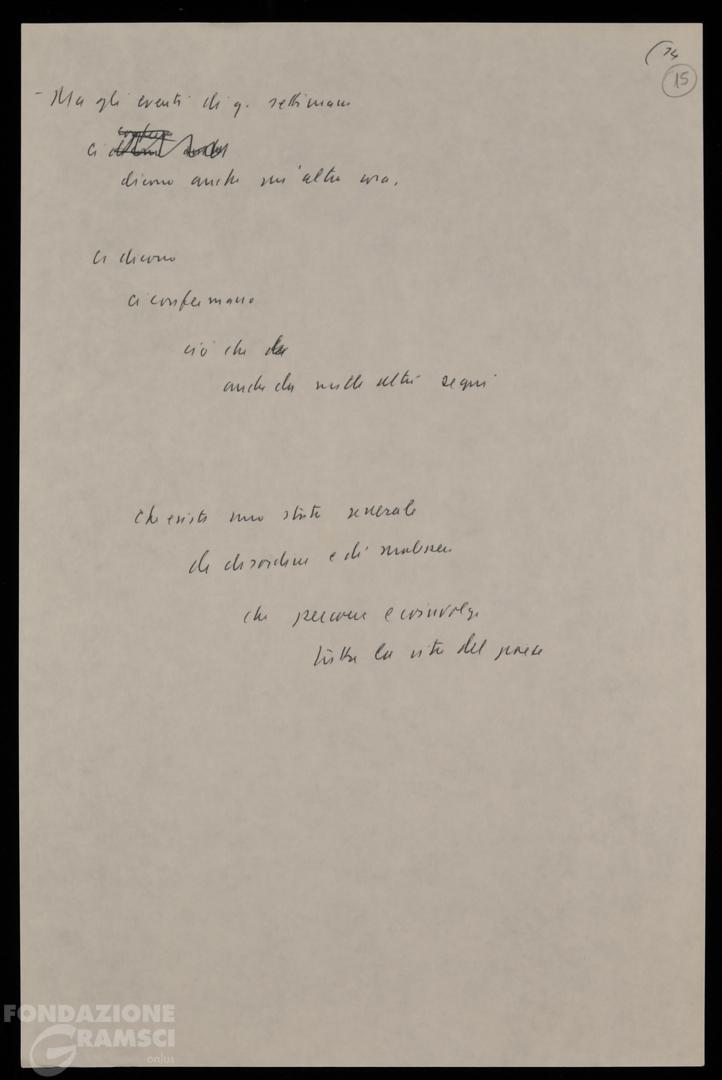 (14
15
- Ma gli eventi di q. settimana
ci
dicono anche un'altra cosa.
ci dicono
ci confermano
ciò che
anche da mille altri segni
che esiste uno stato generale
di disordine e di malessere
che percorre e coinvolge
tutta la vita del paese
FONDAZIONE
GRAMSCI
onlus